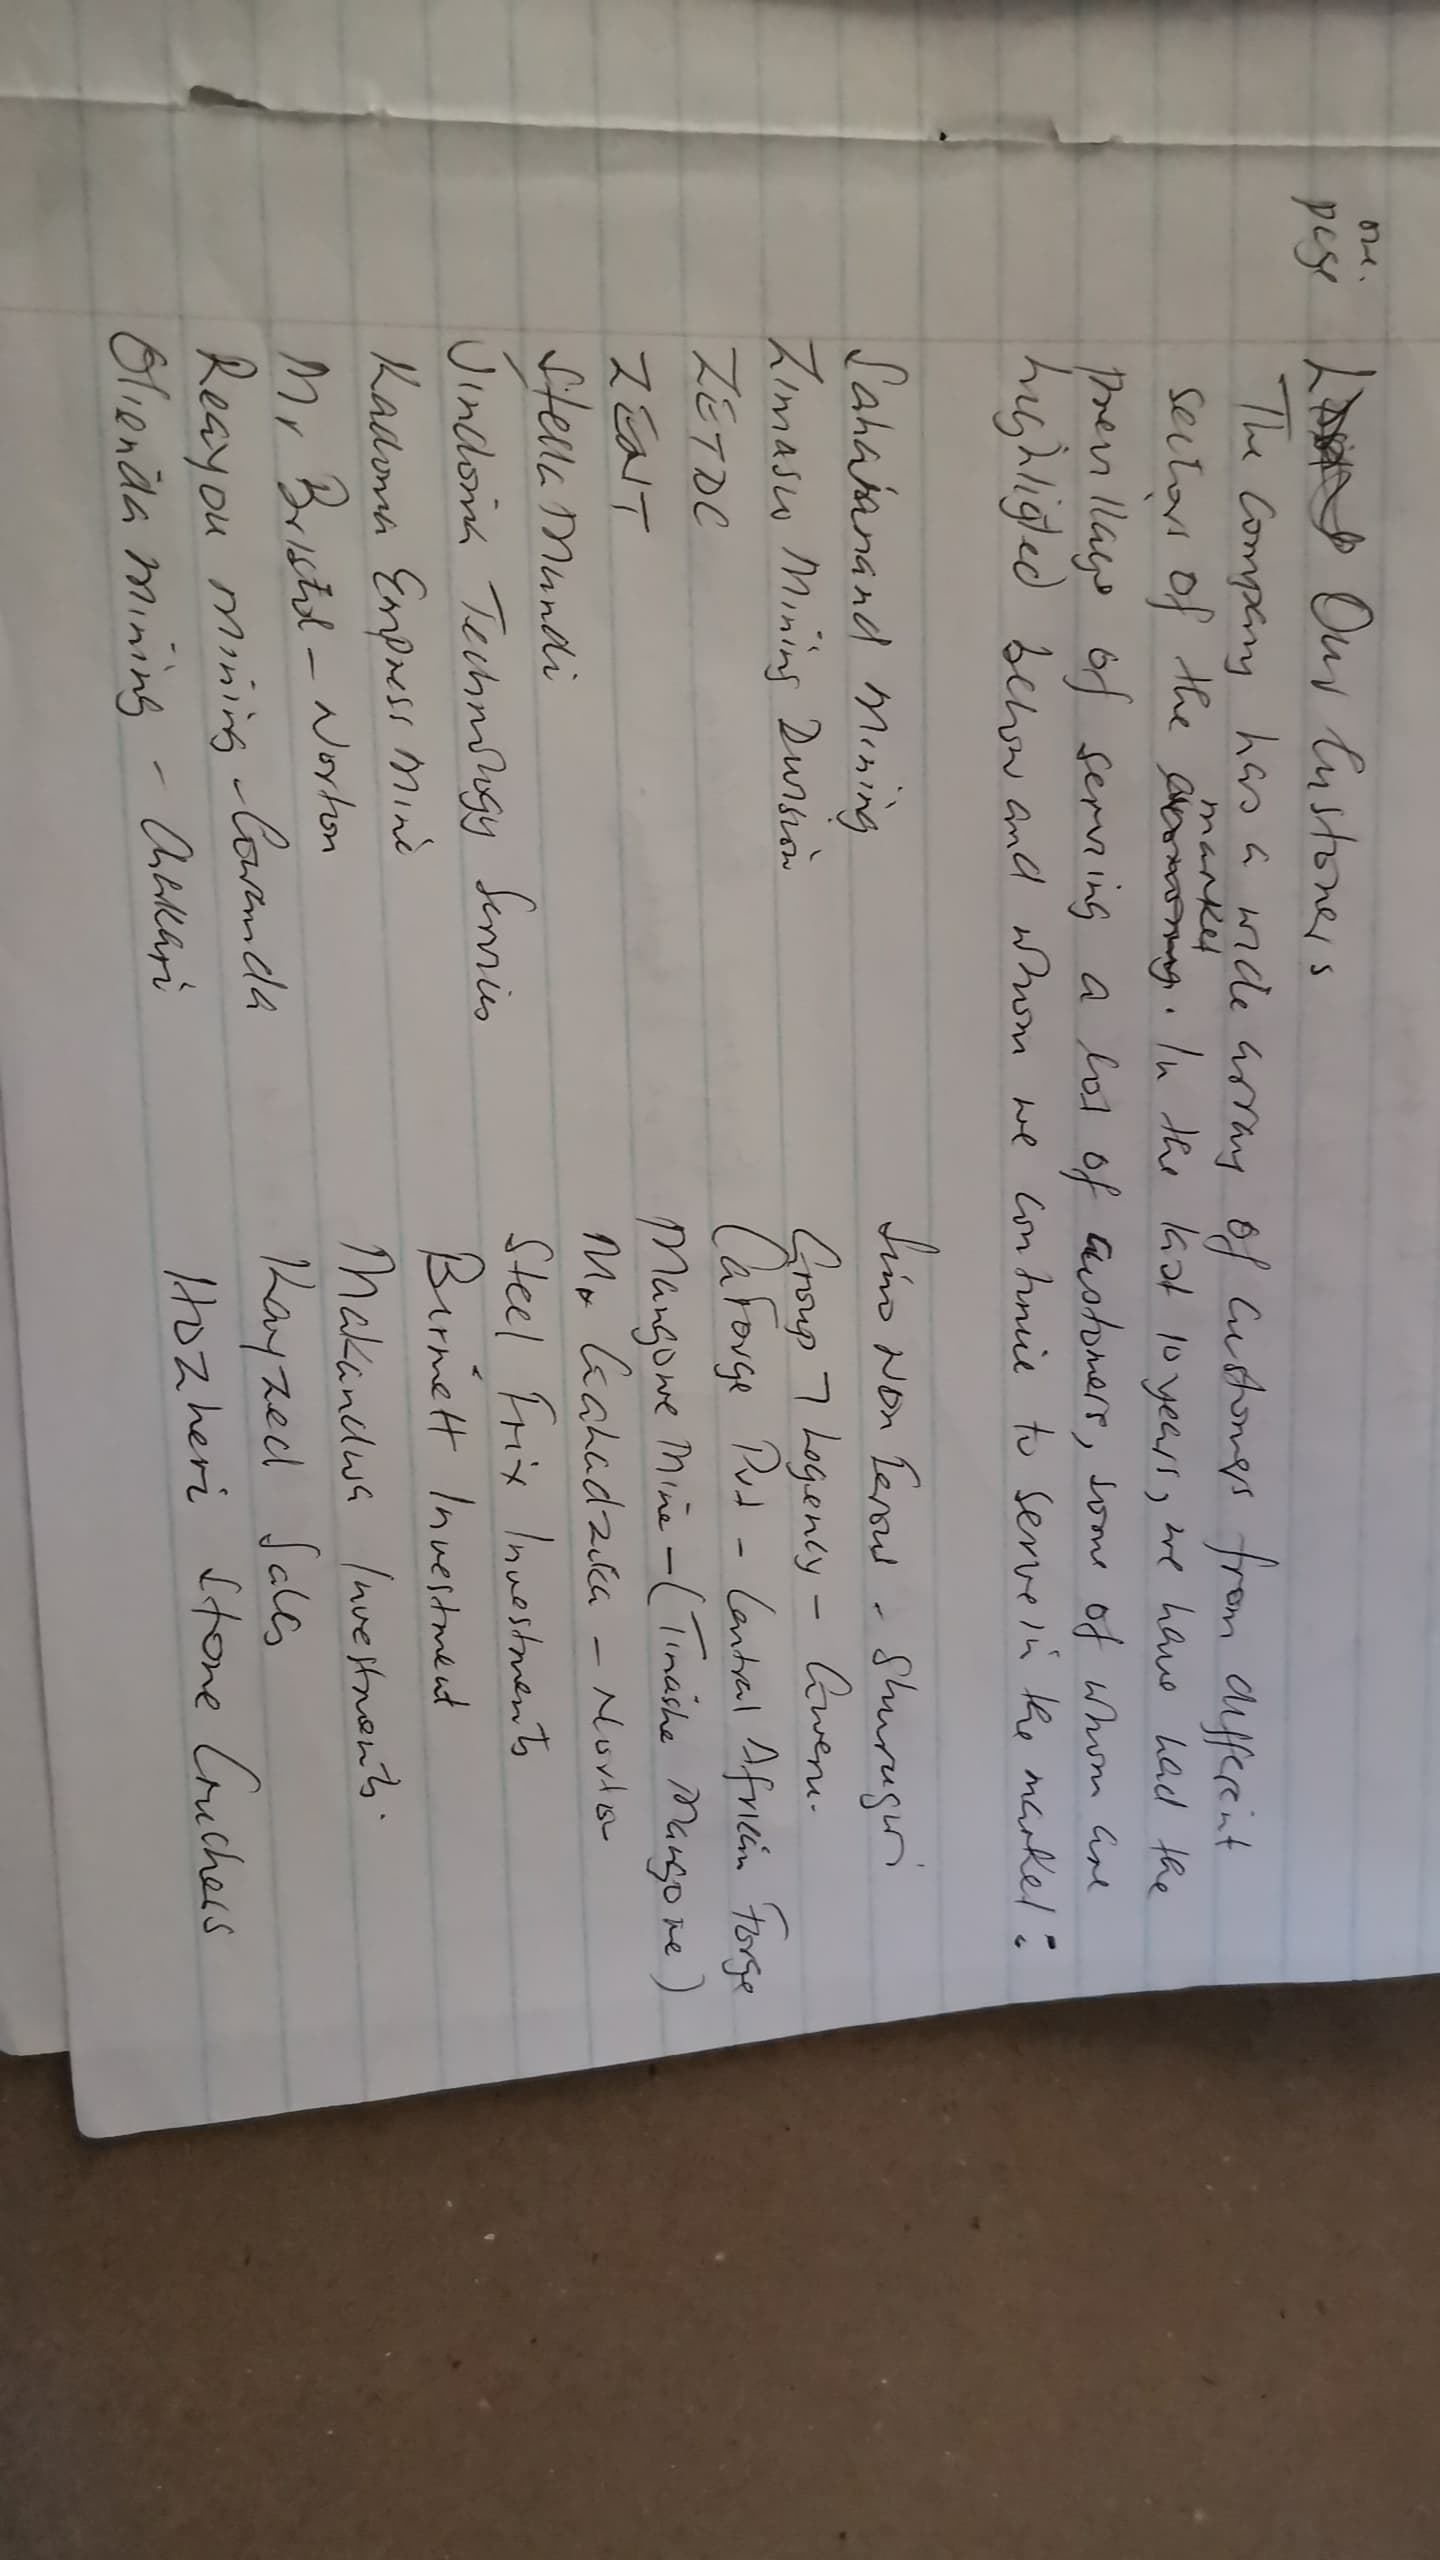 one
page
Our Customers
The company has a wide array of customers from different
sectors of the market. In the last 10 years, we have had the
previllage of serving a lot of customers, some of whom are
highligted below and whom we continue to serve in the market:
Sahajanand Mining
Zimasco Mining Division
ZETDC
ZENT
Stella Mundi
Vindona Technology Services
Kadoma Empress Mine
Mr Bristol - Norton
Reayou mining -
Olienda mining - Chakari
Sino Non Ferous - Shurugwi
Group 7 Logency - Gweru.
Caforge Pvt - Central African Forge
Mangowe Mine - (Tinashe Mangowe)
Mr Gahadzika - Norton
Steel Frix Investments
Burnett Investment
Makandwa Investments.
Kayzed Sales
Hozheri Stone Cruchers